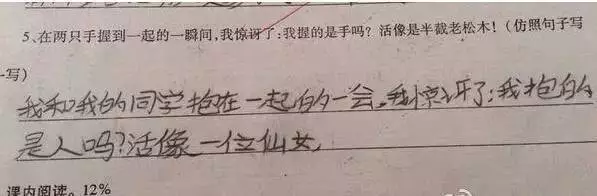 5、在两只手握到一起的一瞬间,我惊讶了:我握的是手吗？活像是半截老松木！(仿照句子写
一写)
我和我的同学抱在一起的一会,我惊讶了:我抱的
是人吗?活像一位仙女.
课内阅读。12%